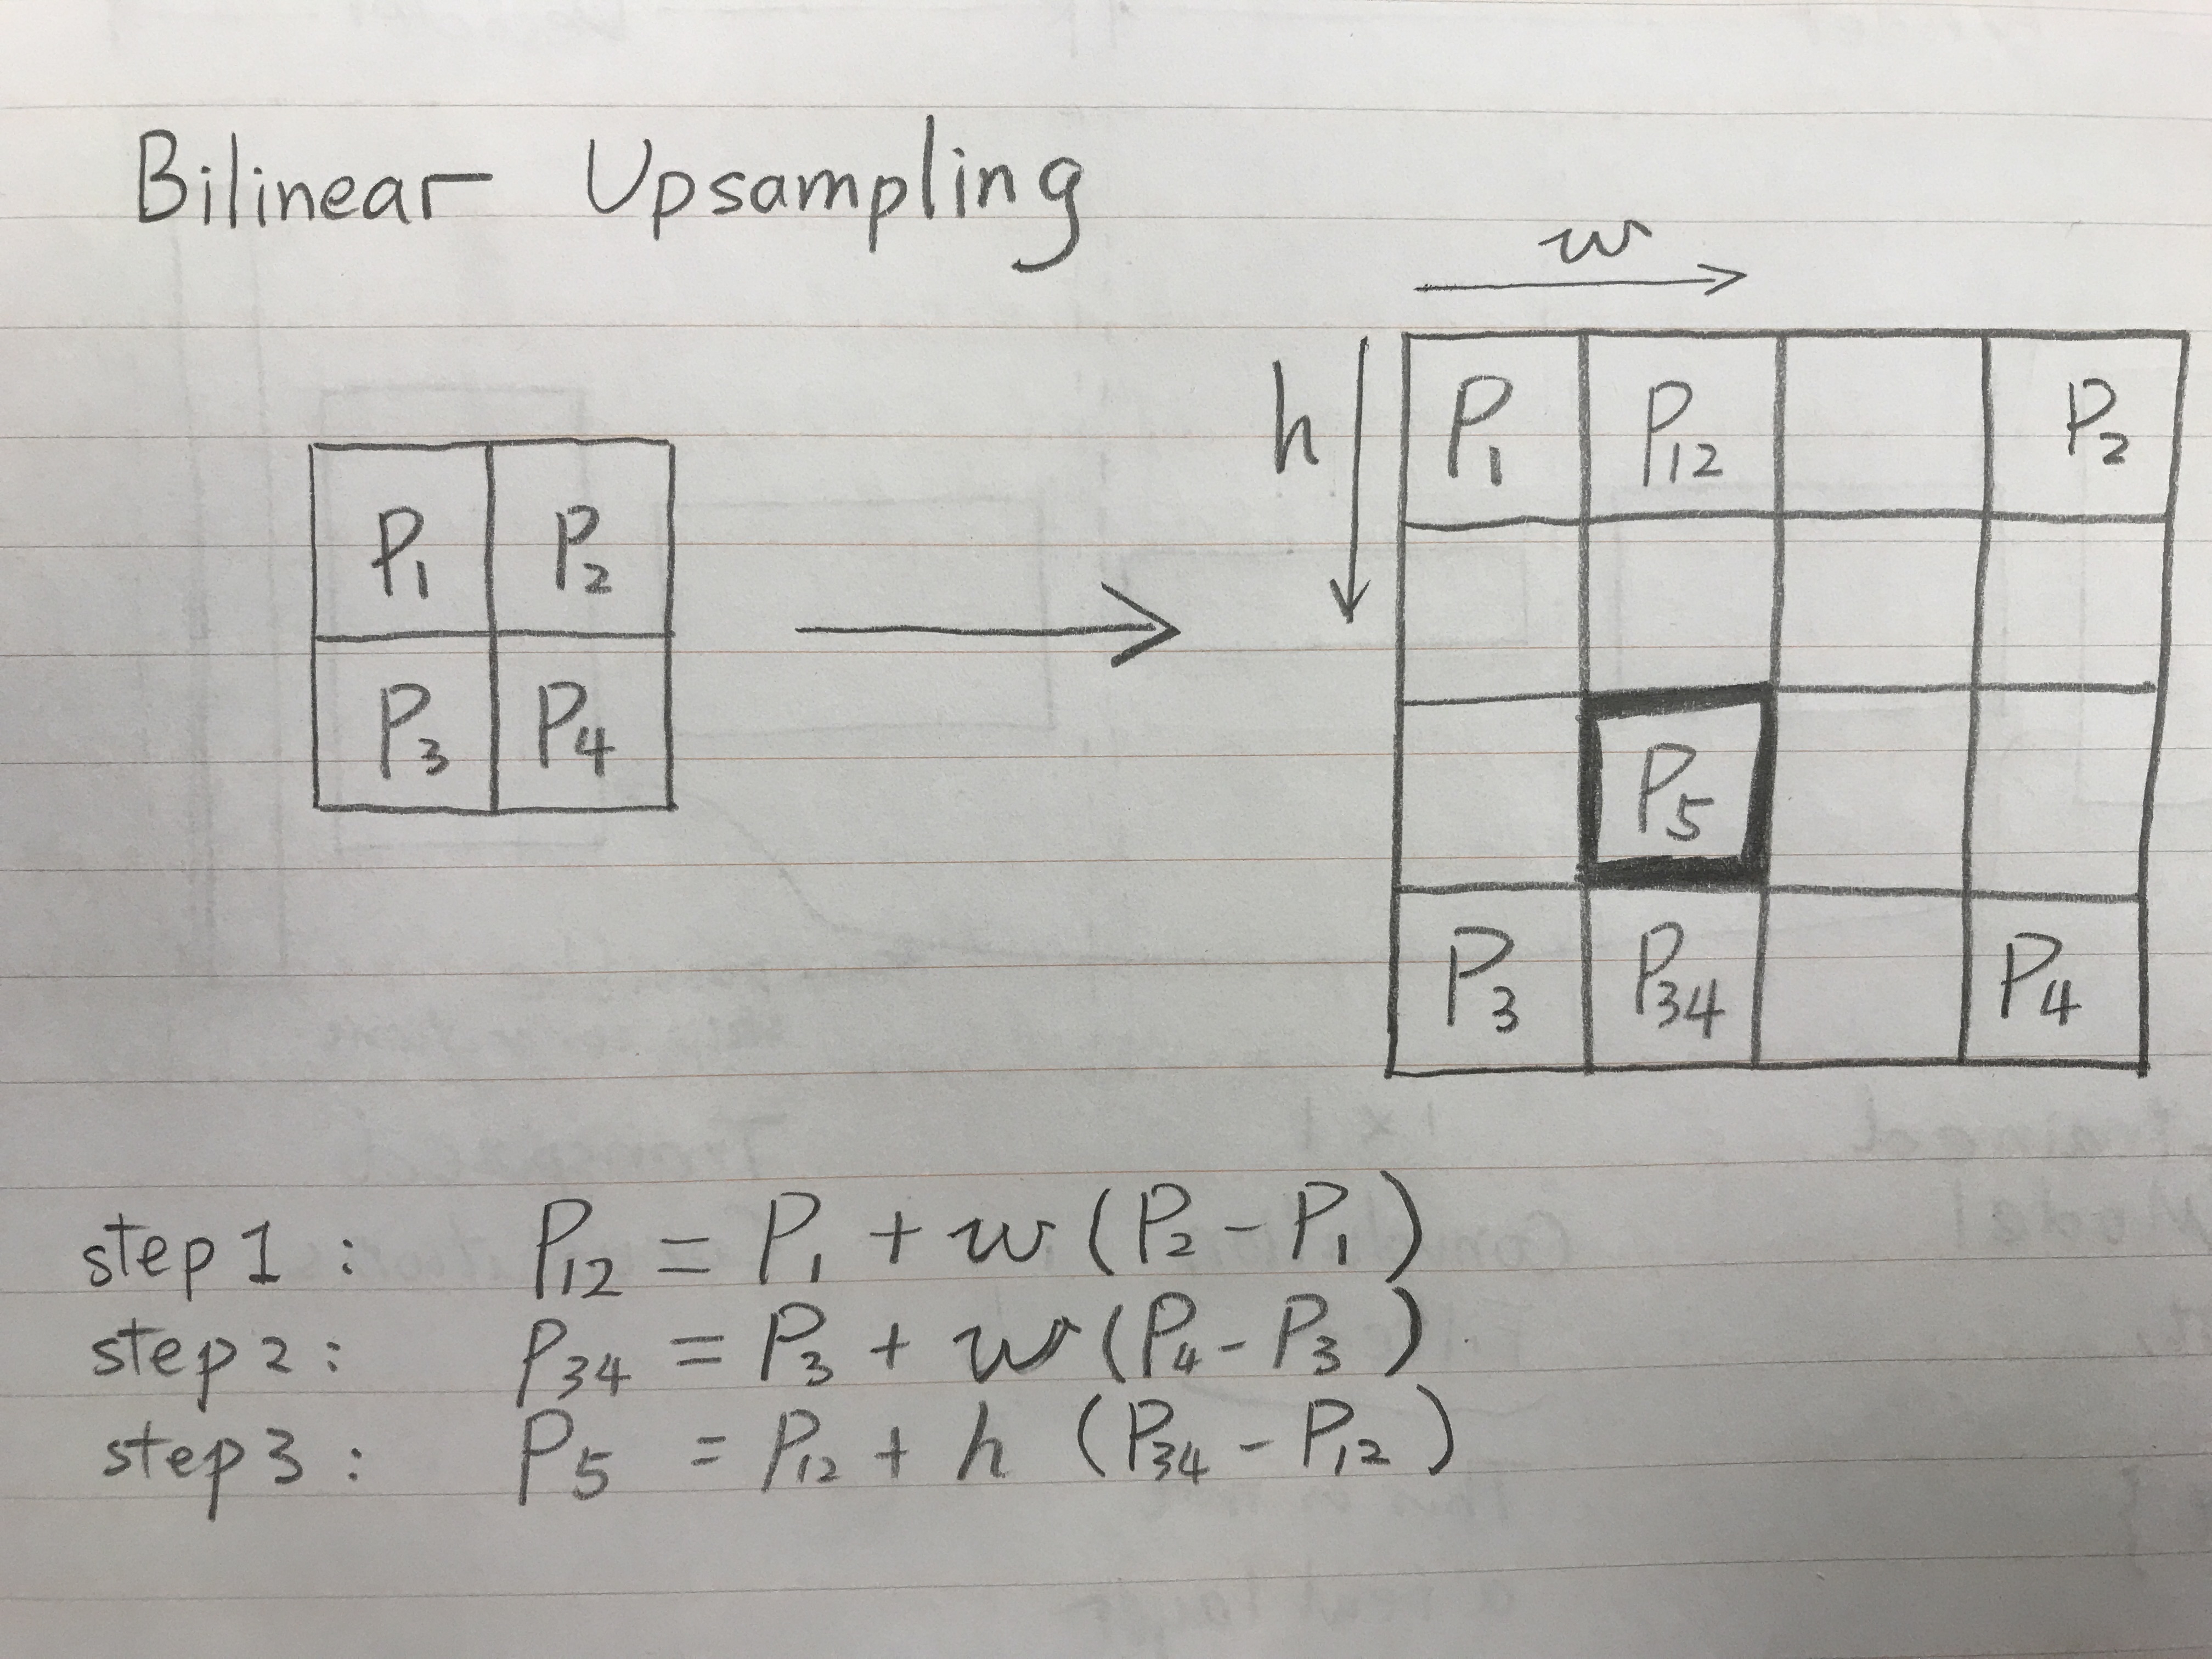 Bilinear Upsampling
w
h
P₁ P₁₂ P₂
P₁ P₂
P₃ P₄
P₅
P₃ P₃₄ P₄
step 1 : P₁₂ = P₁ + w (P₂ - P₁)
step 2 : P₃₄ = P₃ + w (P₄ - P₃)
step 3 : P₅ = P₁₂ + h (P₃₄ - P₁₂)